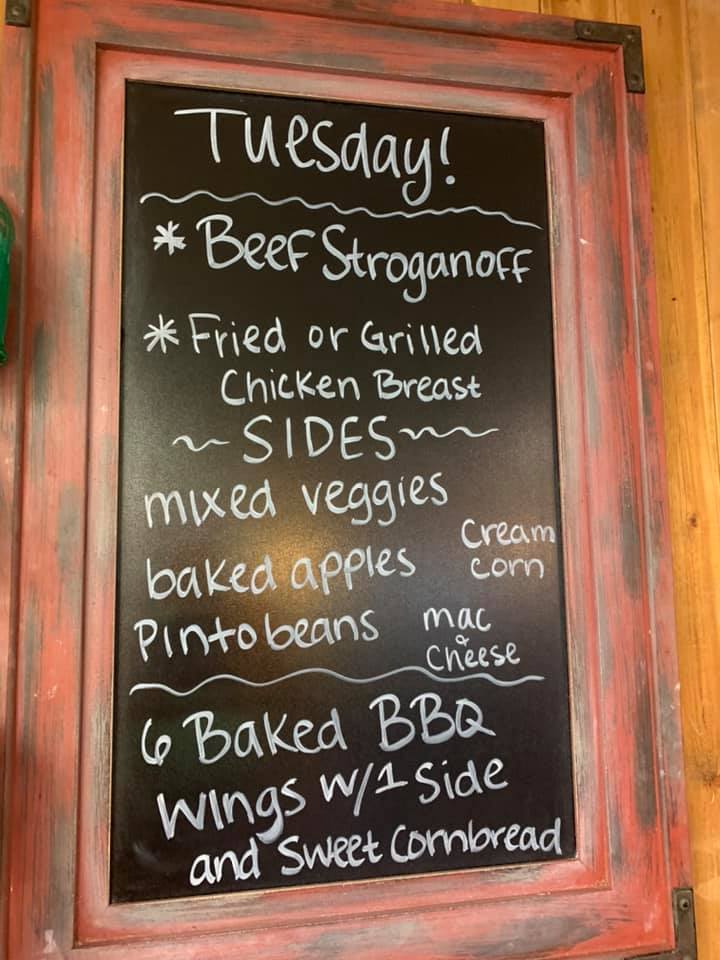 Tuesday!
* Beef Stroganoff
* Fried or Grilled
Chicken Breast
~ SIDES ~
mixed veggies
baked apples
Cream
corn
Pinto beans
mac
&
Cheese
6 Baked BBQ
Wings w/1 Side
and Sweet Cornbread